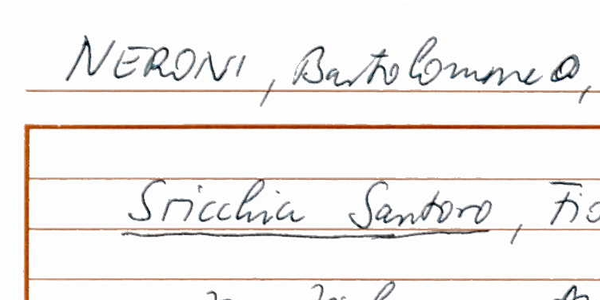 NERONI, Bartolommeo,
Sricchia Santoro, Fio